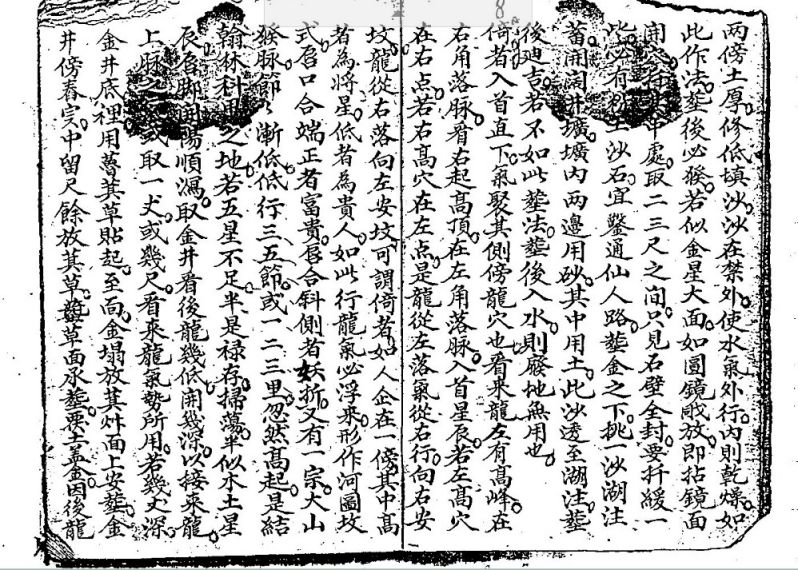 両傍土厚。修低填沙。沙在禁外。使水氣外行。內則乾燥。如
此作法。塟後必發。若似金星大面。如圆鏡戝放。即拈鏡面
開。行中處。取二三尺之间。只見石壁全封。要扦緩一
此。有土沙石。宜鑿通仙人路。塟金之下。挑一沙湖注
蓄。開井壙。壙內两邊用砂。其中用土。此沙透至湖注。塟
後迪吉。若不如此塟法。塟後入水。則廢地無用也。
倚者入首直下。氣聚其側傍龍穴也。看來龍左有高峰。在
右角落脉。看右起高頂。在左角落脉。入首星辰。若左高。穴
在右点。若右高。穴在左点。是龍從左落。氣從右行。向右安
坟。龍從右落。向左安坟。可謂倚者。如人企在一傍。其中高
者為將星。低者為貴人。如此行龍。氣必浮來。形作河圖坟
式。唇口合端正者富貴。唇合斜側者妖折。又有一宗大山
發脉。節々漸低。低行三五節。或一二三里。忽然高起。是結
翰林科甲之地。若五星不足。半是禄存掃蕩。半似木土星
辰。唇脚開陽順濕。取金井看後龍幾低。開幾深。以接來龍
上脉之。或取一丈。或幾尺。看來龍氣勢所用。若幾丈深。
金井底裡用蓍萁草貼起。至面。金塌放萁炐面上安塟。金
井傍舂实。中留尺餘。放萁草。蓍草面承塟。覆土盖金。因後龍